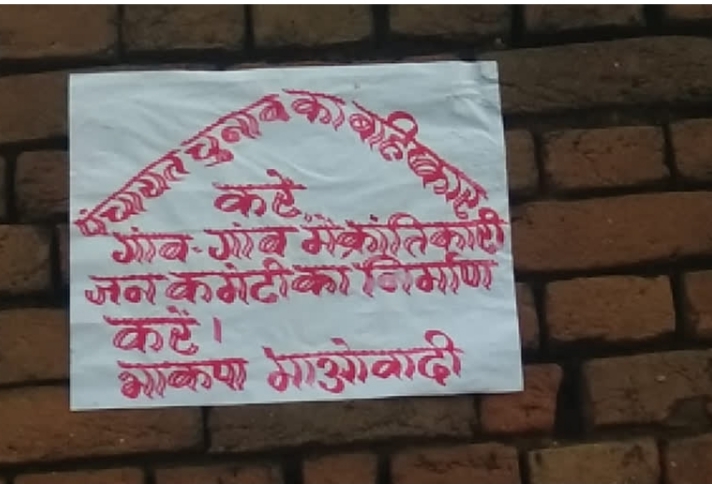 पंचायत चुनाव का बहिष्कार
करें,
गांव-गांव में क्रांतिकारी
जन कमेटी का निर्माण
करें।
भाकपा माओवादी